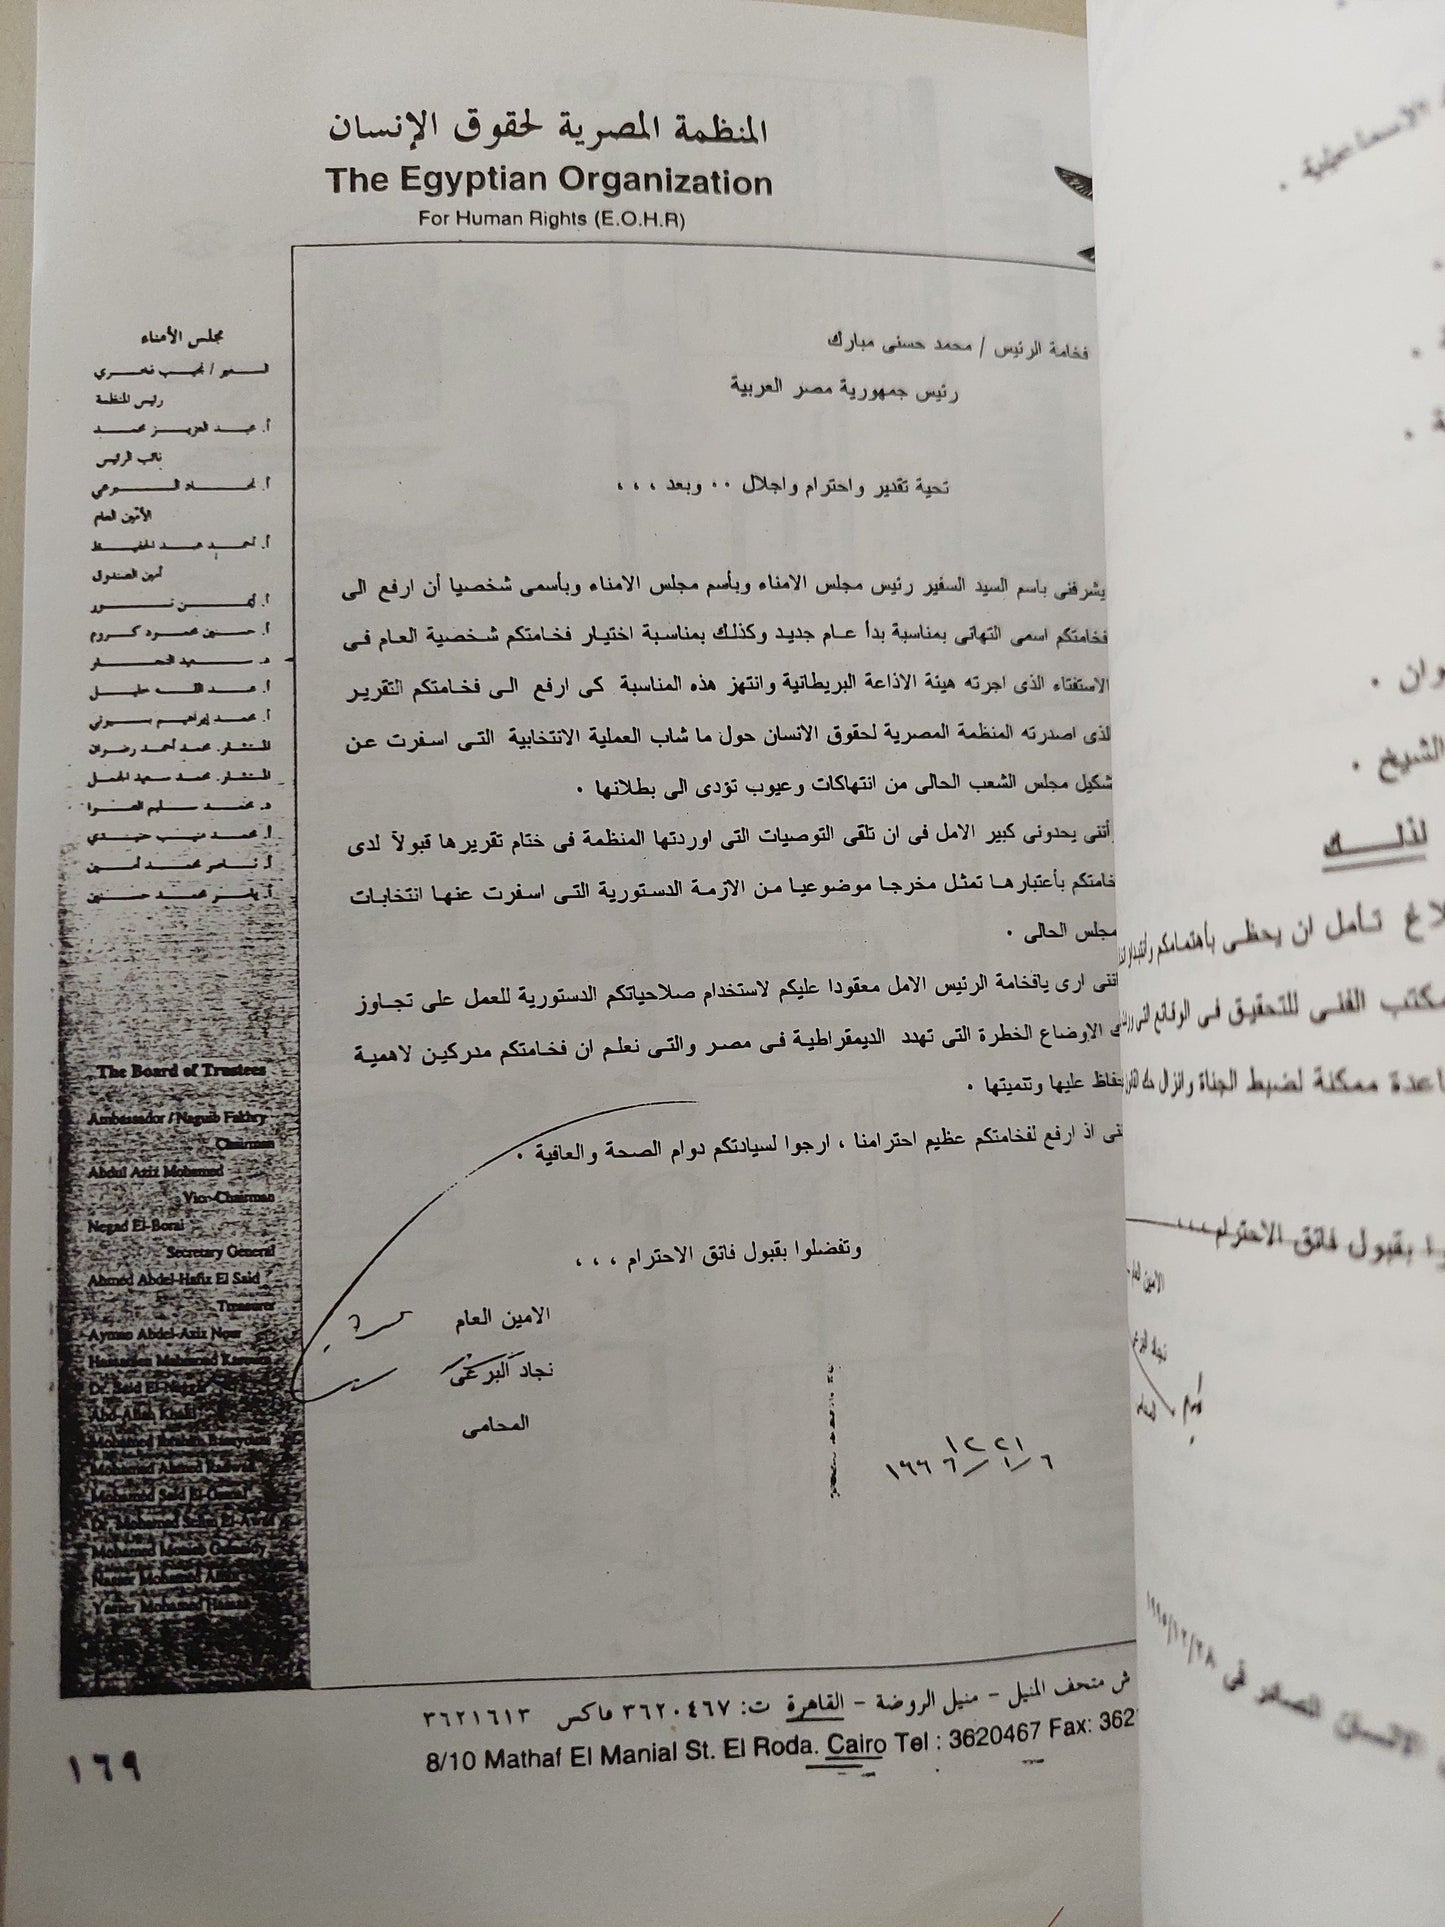 المنظمة المصرية لحقوق الإنسان
The Egyptian Organization
For Human Rights (E.O.H.R)
فخامة الرئيس / محمد حسنى مبارك
رئيس جمهورية مصر العربية
تحية تقدير واحترام واجلال ٠٠ وبعد ،،،
يشرفنى باسم السيد السفير رئيس مجلس الامناء وبأسم مجلس الامناء وبأسمى شخصيا أن ارفع الى
فخامتكم اسمى التهانى بمناسبة بدأ عام جديد وكذلك بمناسبة اختيار فخامتكم شخصية العام فى
الاستفتاء الذى اجرته هيئة الاذاعة البريطانية وانتهز هذه المناسبة كى ارفع الى فخامتكم التقرير
الذى اصدرته المنظمة المصرية لحقوق الانسان حول ما شاب العملية الانتخابية التى اسفرت عن
شكيل مجلس الشعب الحالى من انتهاكات وعيوب تؤدى الى بطلانها ٠
أننى يحدونى كبير الامل فى ان تلقى التوصيات التى اوردتها المنظمة فى ختام تقريرها قبولاً لدى
خامتكم بأعتبارها تمثل مخرجا موضوعيا من الازمة الدستورية التى اسفرت عنها انتخابات
مجلس الحالى ٠
اننى ارى يافخامة الرئيس الامل معقودا عليكم لاستخدام صلاحياتكم الدستورية للعمل على تجاوز
الاوضاع الخطرة التى تهدد الديمقراطية فى مصر والتى نعلم ان فخامتكم مدركين لاهمية
حفاظ عليها وتنميتها ٠
نى اذ ارفع لفخامتكم عظيم احترامنا ، ارجوا لسيادتكم دوام الصحة والعافية ٠
وتفضلوا بقبول فائق الاحترام ،،،
الامين العام
نجاد البرعى
المحامى
مجلس الأمناء
السفير / نجيب فخري
رئيس المنظمة
أ. عبد العزيز محمد
نائب الرئيس
أ. نجاد البرعي
الأمين العام
أ. أحمد عبد الحفيظ
أمين الصندوق
أ. أيمن نور
أ. حسنين محمود كروم
د. سعيد النجار
أ. عبد الله خليل
أ. محمد إبراهيم بسيوني
المستشار. محمد أحمد رضوان
المستشار. محمد سعيد الجمل
د. محمد سليم العوا
أ. محمد منيب جنيدي
أ. ناصر محمد أمين
أ. ياسر محمد حسنين
The Board of Trustees
Ambassador / Naguib Fakhry
Chairman
Abdul Aziz Mohamed
Vice-Chairman
Negad El-Borai
Secretary General
Ahmed Abdel-Hafiz El Said
Treasurer
Ayman Abdel-Aziz Nour
Hassanien Mahmoud Karoum
Dr. Said El-Naggar
Abd-Allah Khalil
Mohamed Ibrahim Bassyouni
Mohamed Ahmed Radwan
Mohamed Said El-Gamal
Dr. Mohamed Selim El-Awa
Mohamed Moniеb
Nasser Mohamed Amin
Yasser Mohamed Hassan
ش متحف المنيل - منيل الروضة - القاهرة ت: ٣٦٢٠٤٦٧ فاكس ٣٦٢١٦١٣
8/10 Mathaf El Manial St. El Roda. Cairo Tel : 3620467 Fax: 362
١٦٩
الاسماعيلية .
الشيخ ٠
لذلــك
لاغ تأمل ان يحظى بأهتمامكم
مكتب الفنى للتحقيق فى الوقائع التى
اعدة ممكنة لضبط الجناة وانزال
وا بقبول فائق الاحترام ،،،
الامين العام
الانسان المصر فى ١٩٩٥/١٢/٢٨